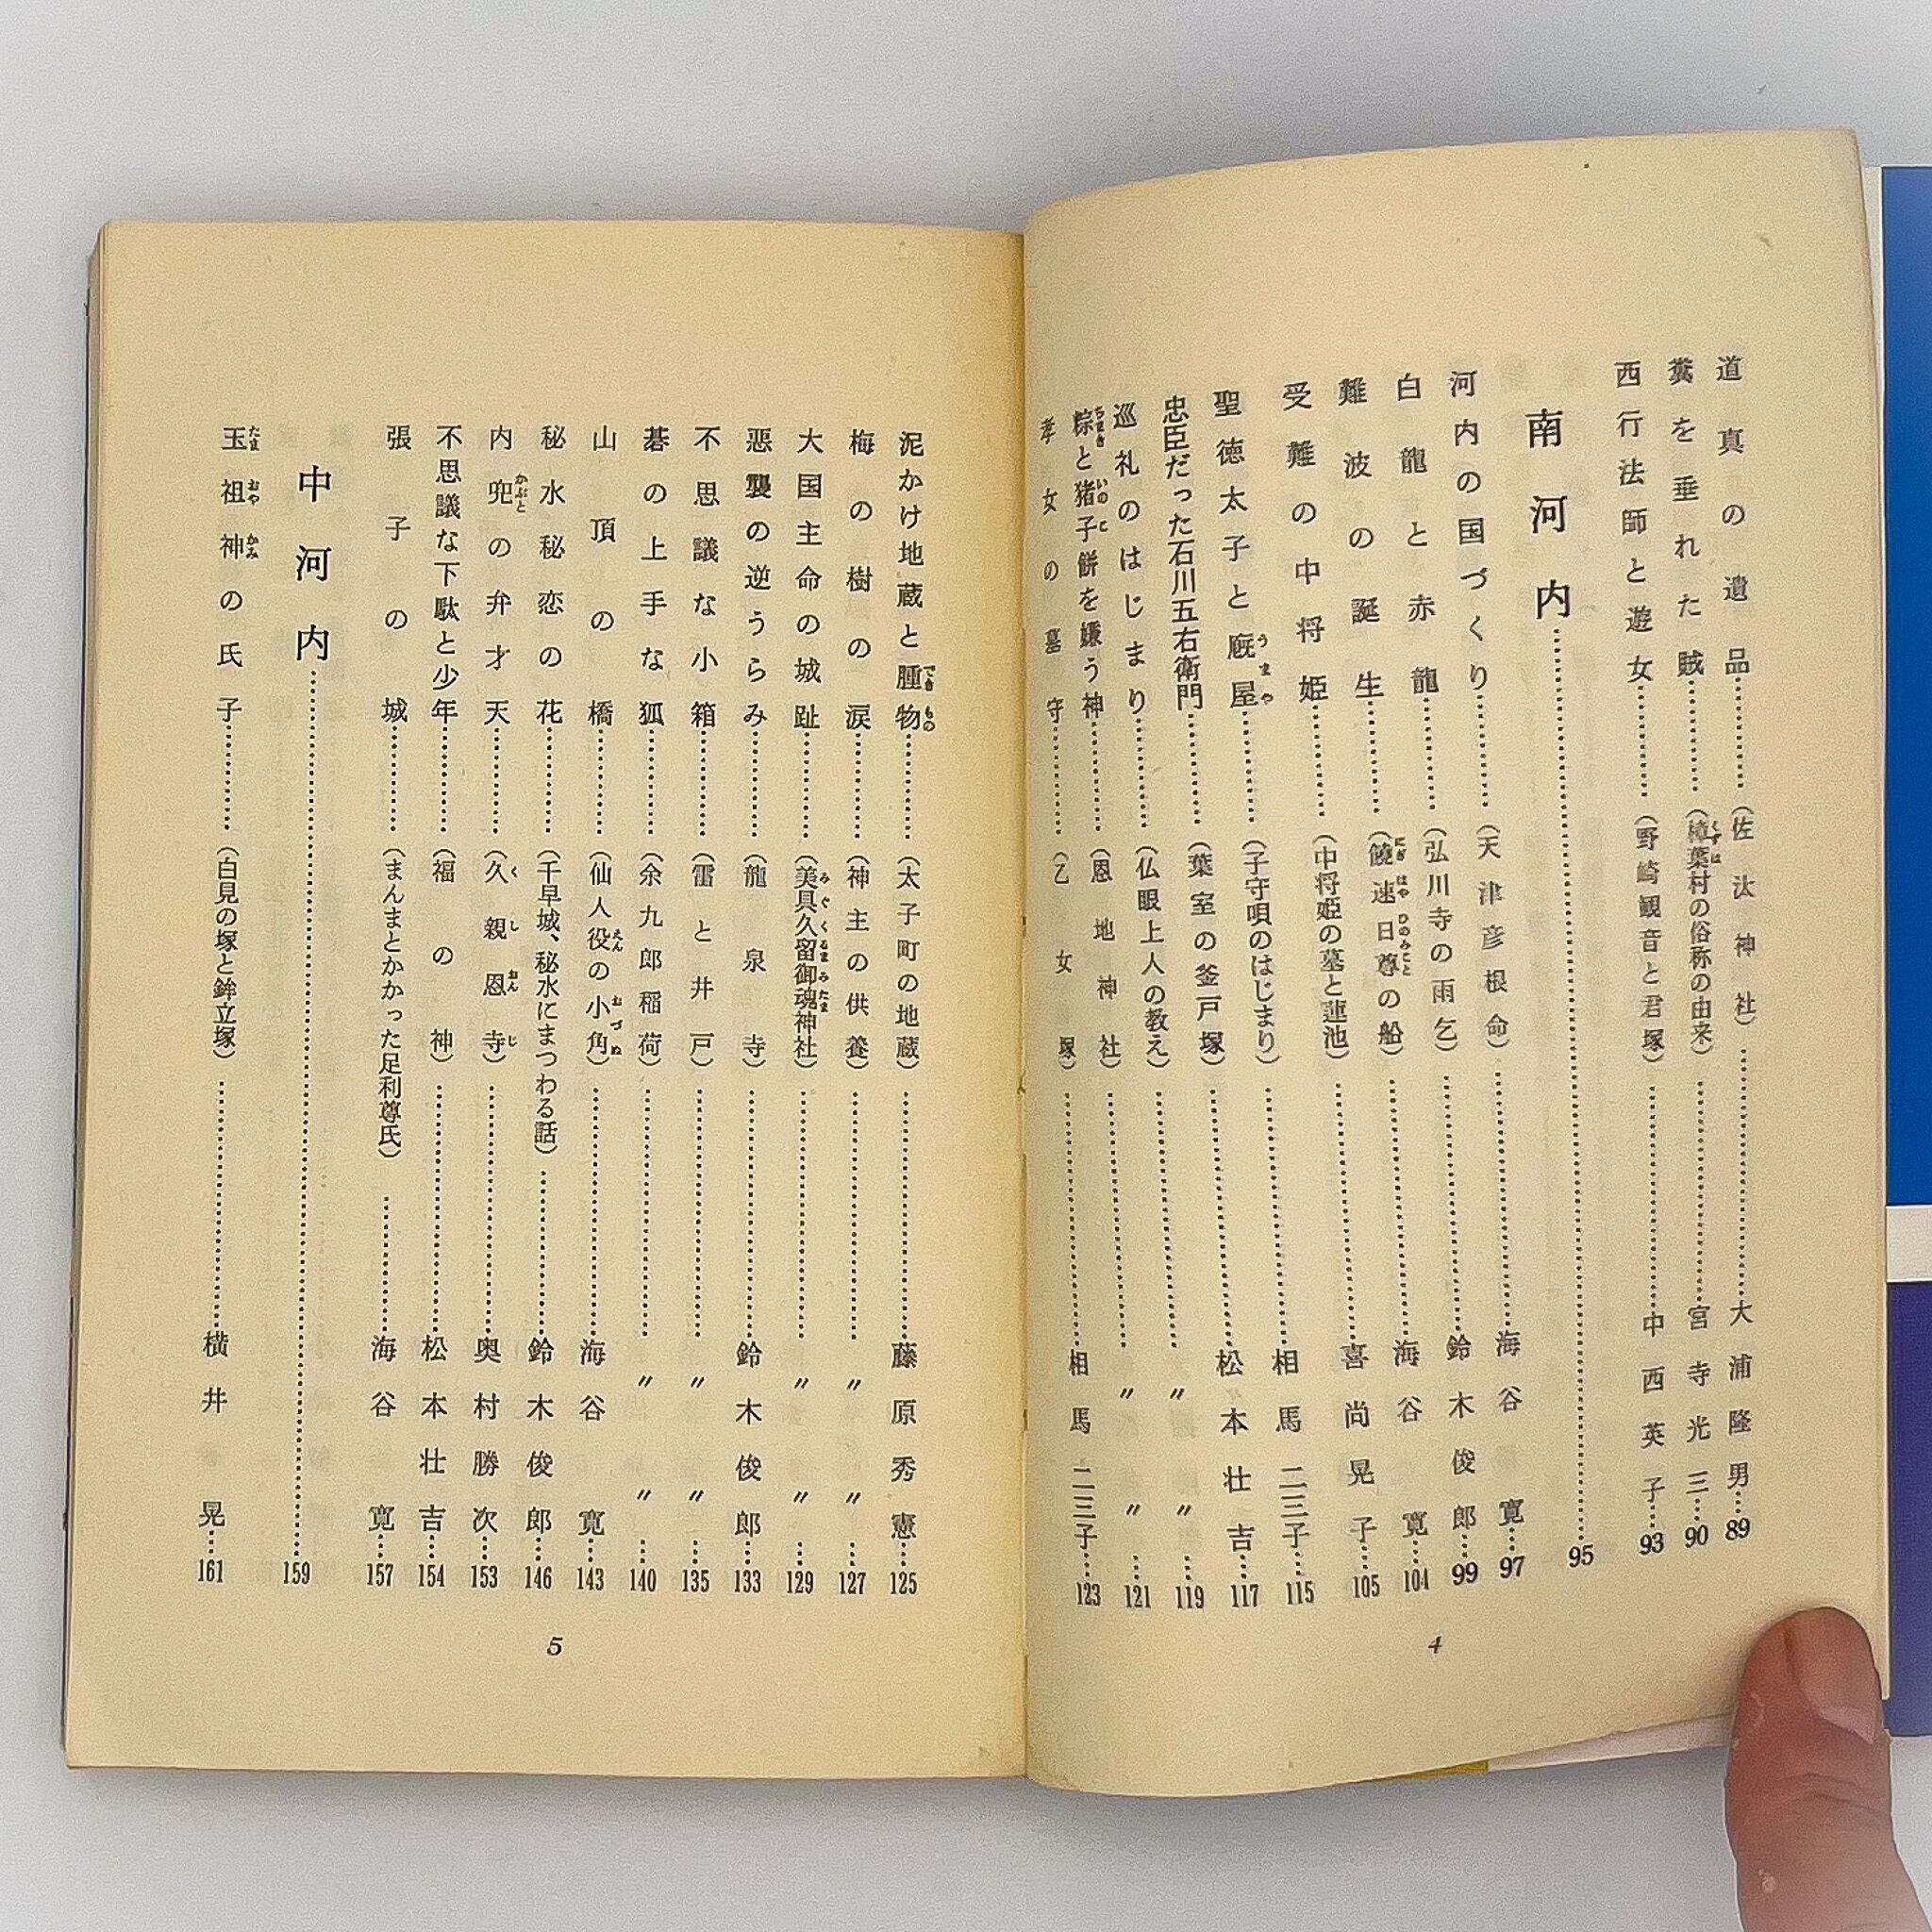 道真の遺品…………(佐汰神社)…………………大浦隆男…89
糞を垂れた賊…………(樟葉村の俗称の由来)…………………宮寺光三…90
西行法師と遊女…………(野崎観音と君塚)…………………中西英子…93
南河内……………………………………………………95
河内の国づくり…………(天津彦根命)…………………海谷寛…97
白龍と赤龍…………(弘川寺の雨乞)…………………鈴木俊郎…99
難波の誕生…………(饒速日尊の船)…………………海谷寛…104
受難の中将姫…………(中将姫の墓と蓮池)…………………喜尚晃子…105
聖徳太子と厩屋…………(子守唄のはじまり)…………………相馬二三子…115
忠臣だった石川五右衛門…………(葉室の釜戸塚)…………………松本壮吉…117
巡礼のはじまり…………(仏眼上人の教え)…………………〃〃…119
粽と猪子餅を嫌う神…………(恩地神社)…………………〃〃…121
孝女の墓守…………(乙女塚)…………………相馬二三子…123
4
泥かけ地蔵と腫物…………(太子町の地蔵)…………………藤原秀憲…125
梅の樹の涙…………(神主の供養)…………………〃〃…127
大国主命の城趾…………(美具久留御魂神社)…………………〃〃…129
悪襲の逆うらみ…………(龍泉寺)…………………鈴木俊郎…133
不思議な小箱…………(雷と井戸)…………………〃〃…135
碁の上手な狐…………(余九郎稲荷)…………………〃〃…140
山頂の橋…………(仙人役の小角)…………………海谷寛…143
秘水秘恋の花…………(千早城、秘水にまつわる話)…………………鈴木俊郎…146
内兜の弁才天…………(久親恩寺)…………………奥村勝次…153
不思議な下駄と少年…………(福の神)…………………松本壮吉…154
張子の城…………(まんまとかかった足利尊氏)…………………海谷寛…157
中河内……………………………………………………159
玉祖神の氏子…………(白見の塚と鉾立塚)…………………横井晃…161
5